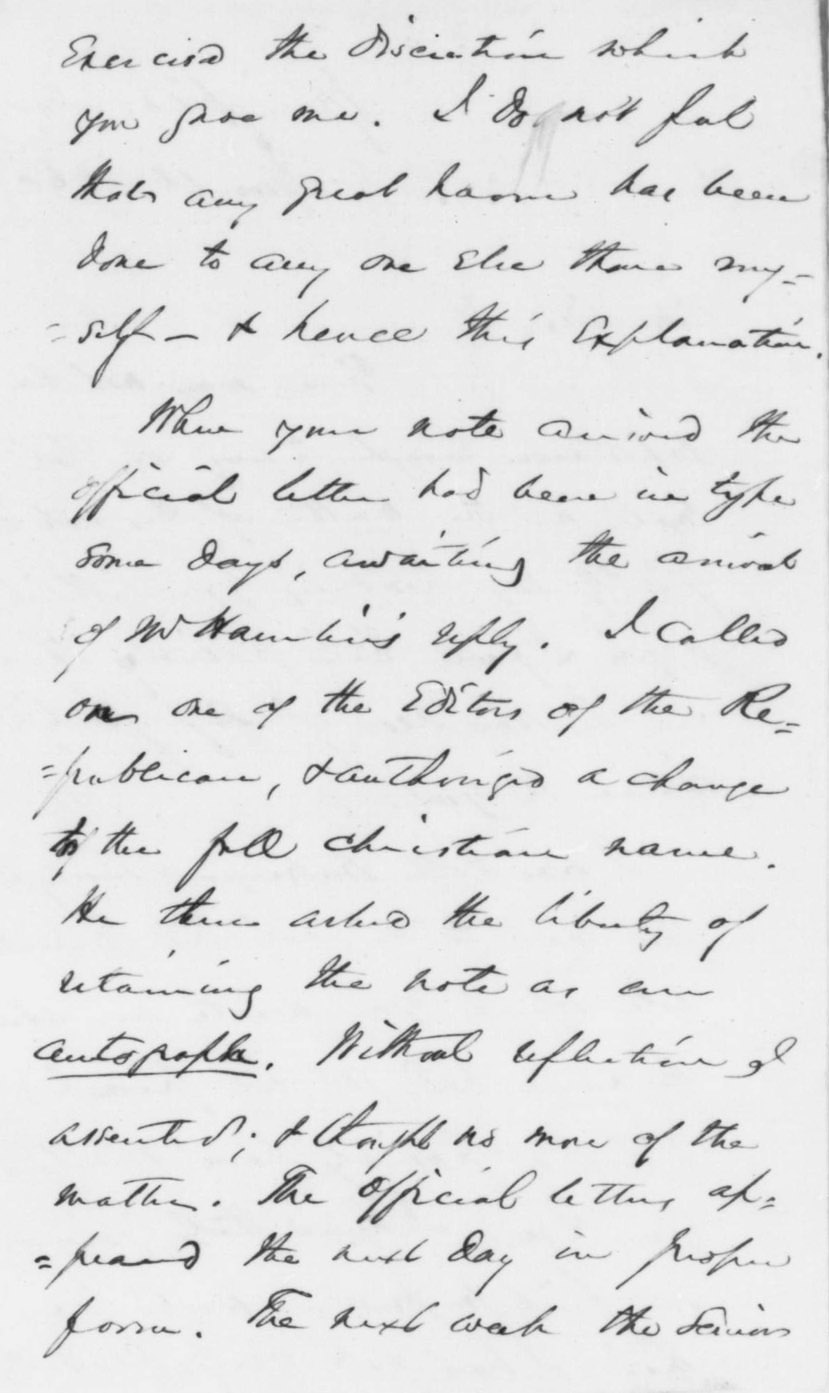 Exercised the discretion which
you gave me. I do not feel
that any great harm has been
done to any one else than my-
-self - & hence this Explanation.
When your note arrived the
official letter had been in type
some days, awaiting the arrival
of Mr Hamlin's reply. I called
on one of the Editors of the Re=
=publican, & authorized a change
to the full christian name.
He then asked the liberty of
retaining the note as an
autograph. Without reflection I
assented; & thought no more of the
matter. The official letters ap=
=peared the next day in proper
form. The next week the